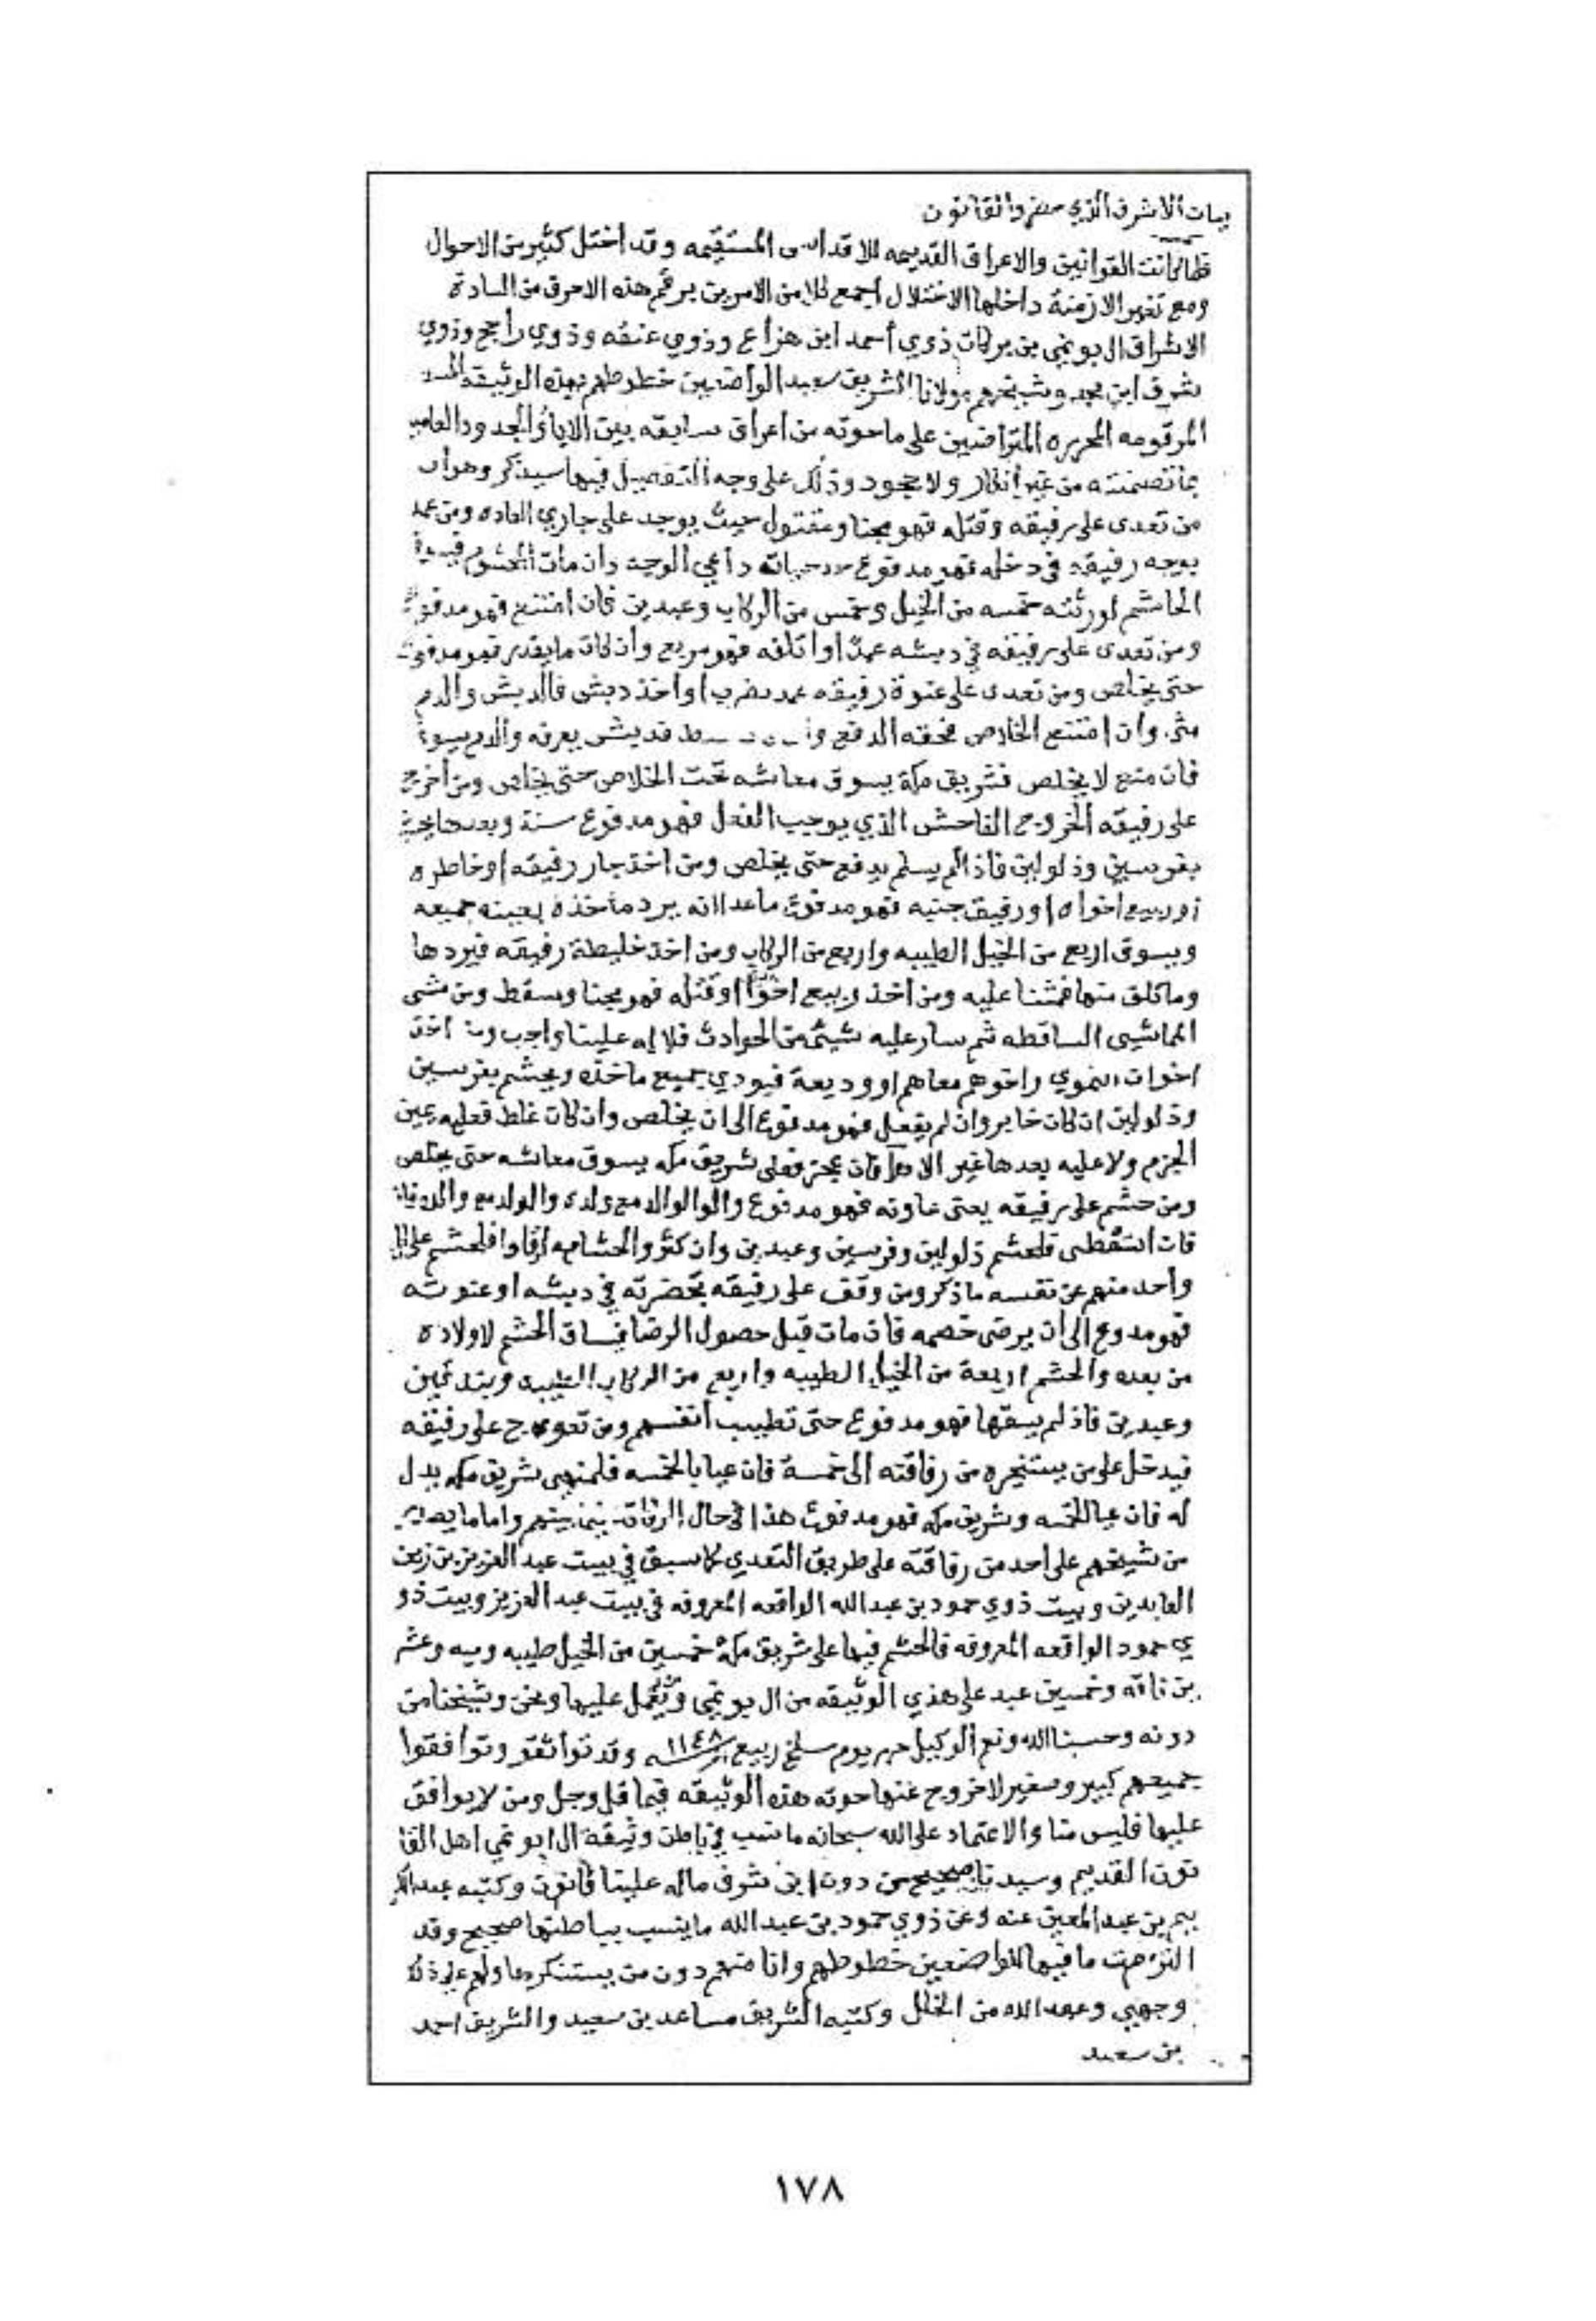 بيان الاشرف الذي حضروا القانون
ظما كانت القوانين والاعراف القديمه للاقدا المستقيمه وقد اختل كثير من الاحوال
ومع تغير الازمنة داخلها الاختلال اجمع للامن الامرين برقم هذه الاحرف من السادة
الاشراف ال بو نمي بن بركات ذوي أحمد ابن هزاع وذوي عنقه وذوي راجح وذوي
شرف ابن وشيخهم مولانا الشريف سعيد الواضعين خطوطهم بهذه الوثيقه
المرقومه المحرره المتراضين على ما حوته من اعراف سابقه بين الاباؤ الجدود العاملين
بما تضمنته من غير انكار ولا جحود وذلك على وجه التفصيل فيها سيذكر وهو أن
من تعدى على رفيقه وقتله فهو مجنا ومقتول حيث يوجد على جاري العاده ومن عمد
بوجه رفيقه في دخله فهو مدفوع حياته داعي الوجه وان مات
الحاشم لورثته خمسه من الخيل وخمس من الركاب وعبدين فان امتنع فهو مدفوع
ومن تعدى على رفيقه في دبشه عمدا او اتلفه فهو مربع وان كان ما يقدر فهو مدفوع
حتى يخلص ومن تعدى على عنوة رفيقه عمد بضرب او اخذ دبش فالدبش والدم
مثى وان امتنع الخلاص فحقه الدفع قديش يعرفه والدم يسوق
فان منع لا يخلص فشريف مكة يسوق معاشه تحت الخلاص حتى يخلص ومن اخرج
على رفيقه الخروج الفاحش الذي يوجب الفعل فهو مدفوع سنة وبعدها يجي
بفرسين وذلولين فاذا لم يسلم يدفع حتى يخلص ومن اخذ جار رفيقه او خاطره
او ربيع اخواه او رفيق جنبه فهو مدفوع ما عدا انه يرد ما خذه بعينه جميعه
ويسوق اربع من الخيل الطيبه واربع من الركاب ومن اخذ خليطة رفيقه فيردها
وما تلف منها فمثنا عليه ومن اخذ ربيع اخوا او قتله فهو مجنا ويسقط ومن مشى
المماشي الساقطه ثم سار عليه شيئ من الحوادث فلا له علينا واجب ومن اخذ
اخوات النموي واخوهم معاهم او وديعة فيودي جميع ما خذه ويحشم بفرسين
وذلولين ان كان خابر وان لم يفعل فهو مدفوع الى ان يخلص وان كان غلط فعليه يمين
الجزم ولا عليه بعدها غير الادا فان عجز فعلى شريف مكه يسوق معاشه حتى يخلص
ومن حشم على رفيقه يحتى عاونه فهو مدفوع والوالد مع ولده والولد مع والده فان
فان انتقطى فلحشم ذلولين وفرسين وعبدين وان كثرو الحشامه فلحشم على
واحد منهم عن نفسه ما ذكر ومن وقف على رفيقه بحضرته في دبشه او عنوته
فهو مدفوع الى ان يرضى خصمه فان مات قبل حصول الرضا فساق الحشم لاولاده
من بعده والحشم اربعة من الخيل الطيبه واربع من الركاب الطيبه
وعبدين فاذ لم يسقها فهو مدفوع حتى تطيب انفسهم ومن تعوج على رفيقه
فيدخل على من يستنجره من رفاقته الى خمسة فان عيا بالخمسه فلمنهى شريف مكه بدل
له فان عيا للخمسه وشريف مكه فهو مدفوع هذا في حال الرفاق بينهم واما ما يصير
من شيخهم على احد من رفاقته على طريق التعدي كما سبق في بيت عبد العزيز بن زين
العابدين وبيت ذوي حمود بن عبد الله الواقعه المعروفه في بيت عبد العزيز وبيت ذو
ي حمود الواقعه المعروفه فالحشم فيها على شريف مكة خمسين من الخيل طيبه وميه وعشر
ين ناقه وخمسين عبد على هذي الوثيقه من ال بو نمي ونعمل عليها ونحن وشيخنا من
دونه وحسبنا الله ونعم الوكيل حرر يوم سلخ ربيع ١١٤٨ وقد تواثقو وتوافقوا
جميعهم كبير وصغير لا خروج عنها حوته هذه الوثيقه فيما قل وجل ومن لا يوافق
عليها فليس منا والاعتماد على الله سبحانه ما نسب في باطن وثيقة ال ابو نمي اهل القا
نون القديم وسيدنا صحيح من دون ابن شرف ماله علينا قانون وكتبه
بن عبد المعين عنه وعن ذوي حمود بن عبد الله ما ينسب بباطنها صحيح وقد
التزمت ما فيها للواضعين خطوطهم وانا منهم دون من يستنكرها ولهم على ذلك
وجهي وعهد الله من الخلل وكتبه الشريف مساعد بن سعيد والشريف احمد
بن سعيد
١٧٨